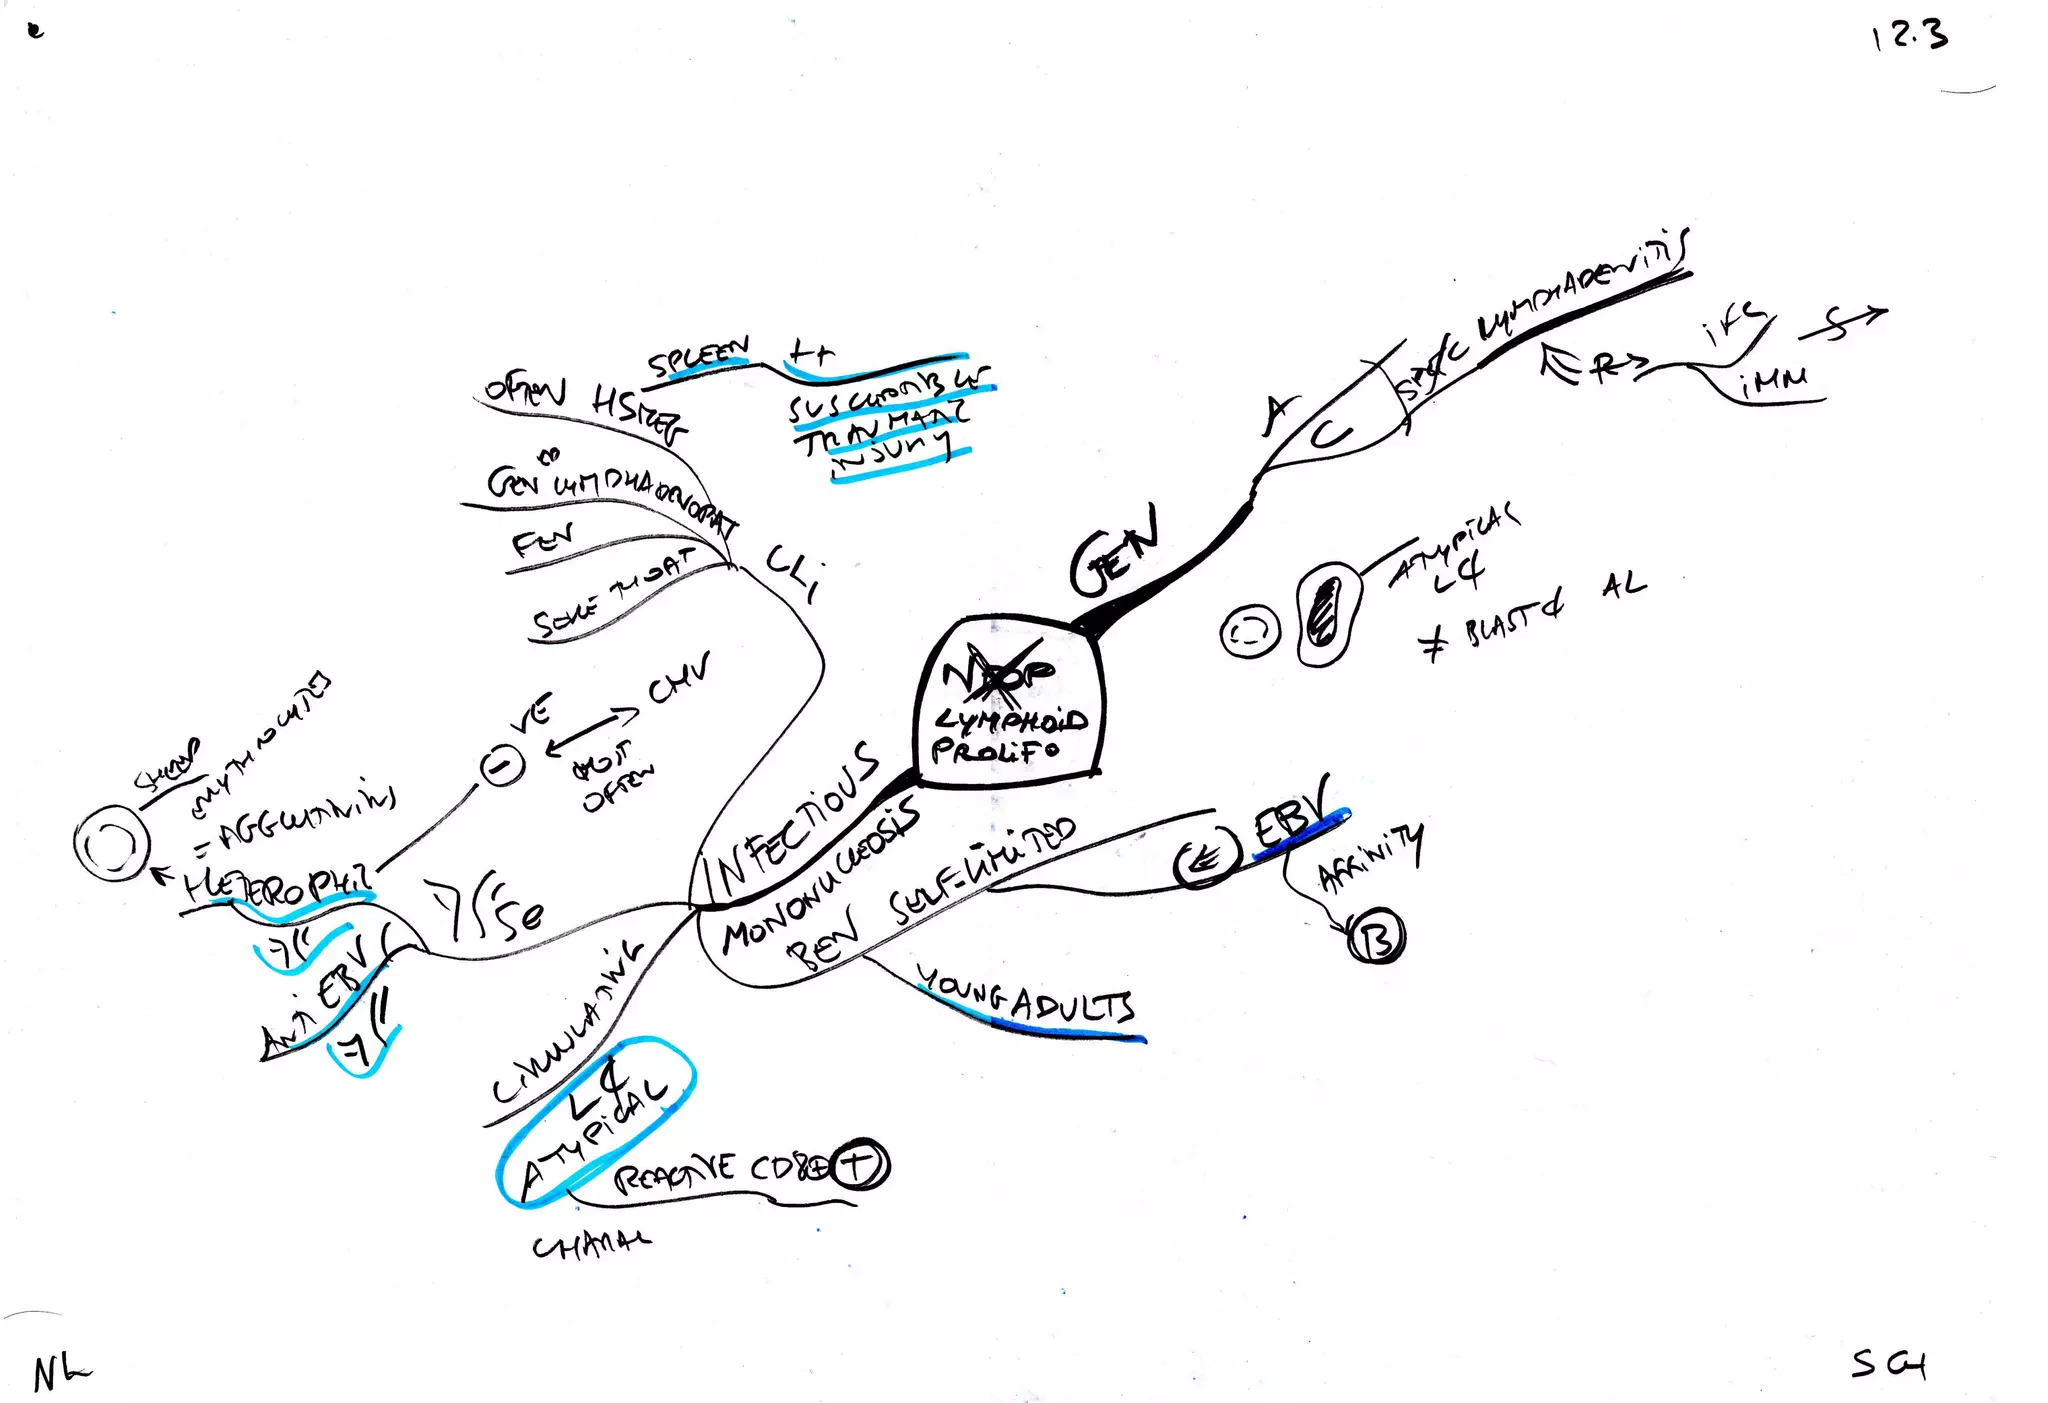 12.3
GEN
A
C
LYMPHADENITIS
R
IMM
S
ATYPICAL
L¢
≠ BLAST¢ AL
NEOP
LYMPHOID
PROLIF
INFECTIOUS
MONONUCLEOSIS
BEN SELF-LIMITED
EBV
AFFINITY
B
YOUNG ADULTS
CLI
OFTEN HSMEG
SPLEEN ++
SUSCEPTIBLE
TRAUMAT
INJURY
GEN LYMPHADENOPAT
FEV
SORE THROAT
Se
HETEROPHIL
= AGGLUTININS
SHEEP
ERYTHROCYTES
- VE
MOST
OFTEN
CMV
ANTI EBV
CIRCULATING
L¢
ATYPICAL
REACTIVE CD8+ T
CHARAC
NL
SCH